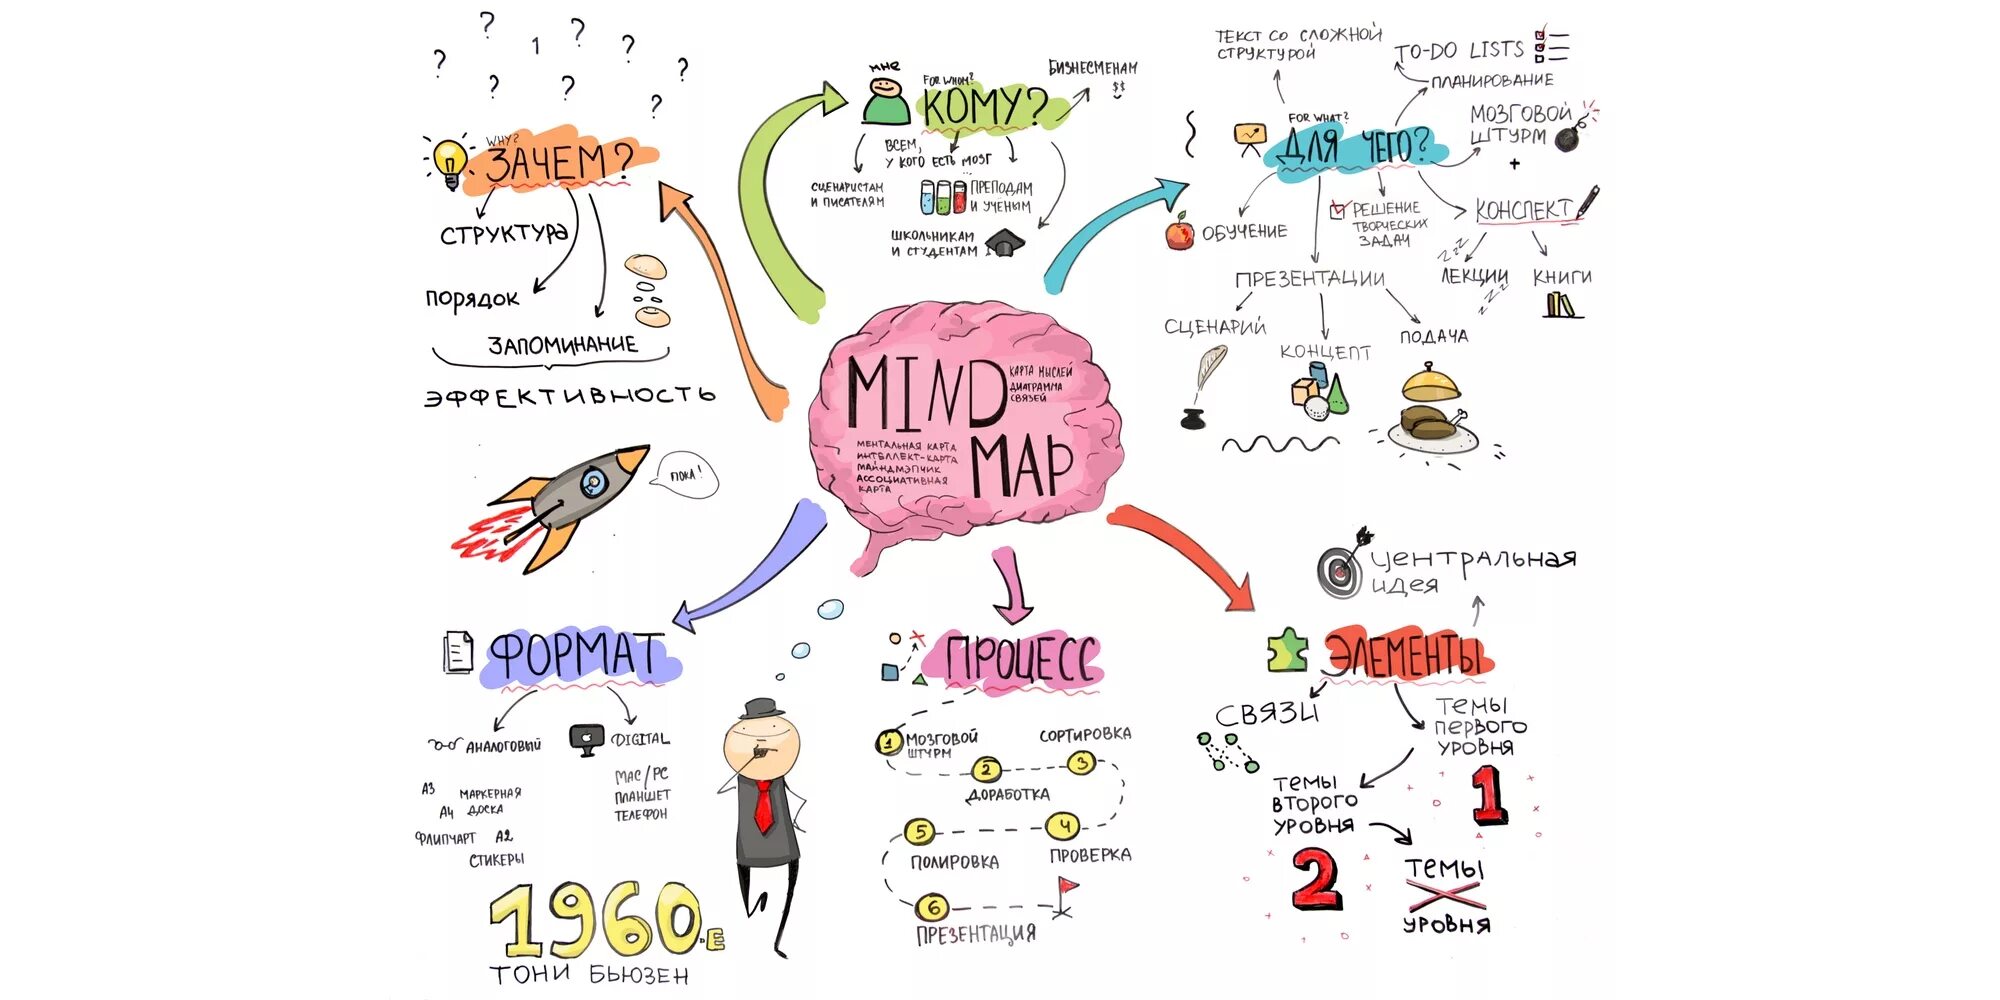 MIND
MAP
КАРТА МЫСЛЕЙ
ДИАГРАММА
СВЯЗЕЙ
МЕНТАЛЬНАЯ КАРТА
ИНТЕЛЛЕКТ-КАРТА
МАЙНДМЭПЧИК
АССОЦИАТИВНАЯ
КАРТА
? ? 1 ? ? ? ? ? ?
WHY?
ЗАЧЕМ?
СТРУКТУРА
ПОРЯДОК
ЗАПОМИНАНИЕ
ЭФФЕКТИВНОСТЬ
ПОКА!
МНЕ
FOR WHOM?
КОМУ?
БИЗНЕСМЕНАМ
$$
ВСЕМ,
У КОГО ЕСТЬ МОЗГ
...
СЦЕНАРИСТАМ
И ПИСАТЕЛЯМ
ПРЕПОДАМ
И УЧЕНЫМ
ШКОЛЬНИКАМ
И СТУДЕНТАМ
ТЕКСТ СО СЛОЖНОЙ
СТРУКТУРОЙ
TO-DO LISTS
ПЛАНИРОВАНИЕ
FOR WHAT?
ДЛЯ ЧЕГО?
МОЗГОВОЙ
ШТУРМ
+
КОНСПЕКТ
ZZZ
ЛЕКЦИИ
ZZZ
КНИГИ
ОБУЧЕНИЕ
РЕШЕНИЕ
ТВОРЧЕСКИХ
ЗАДАЧ
ПРЕЗЕНТАЦИИ
СЦЕНАРИЙ
КОНЦЕПТ
ПОДАЧА
ФОРМАТ
АНАЛОГОВЫЙ
DIGITAL
А3
МАРКЕРНАЯ
ДОСКА
А4
ФЛИПЧАРТ
А2
СТИКЕРЫ
MAC/PC
ПЛАНШЕТ
ТЕЛЕФОН
1960-Е
ТОНИ БЬЮЗЕН
ПРОЦЕСС
1 МОЗГОВОЙ
ШТУРМ
2
ДОРАБОТКА
СОРТИРОВКА
3
4
ПРОВЕРКА
5
ПОЛИРОВКА
6
ПРЕЗЕНТАЦИЯ
ЦЕНТРАЛЬНАЯ
ИДЕЯ
ЭЛЕМЕНТЫ
СВЯЗИ
ТЕМЫ
ПЕРВОГО
УРОВНЯ
1
ТЕМЫ
ВТОРОГО
УРОВНЯ
2
ТЕМЫ
X
УРОВНЯ